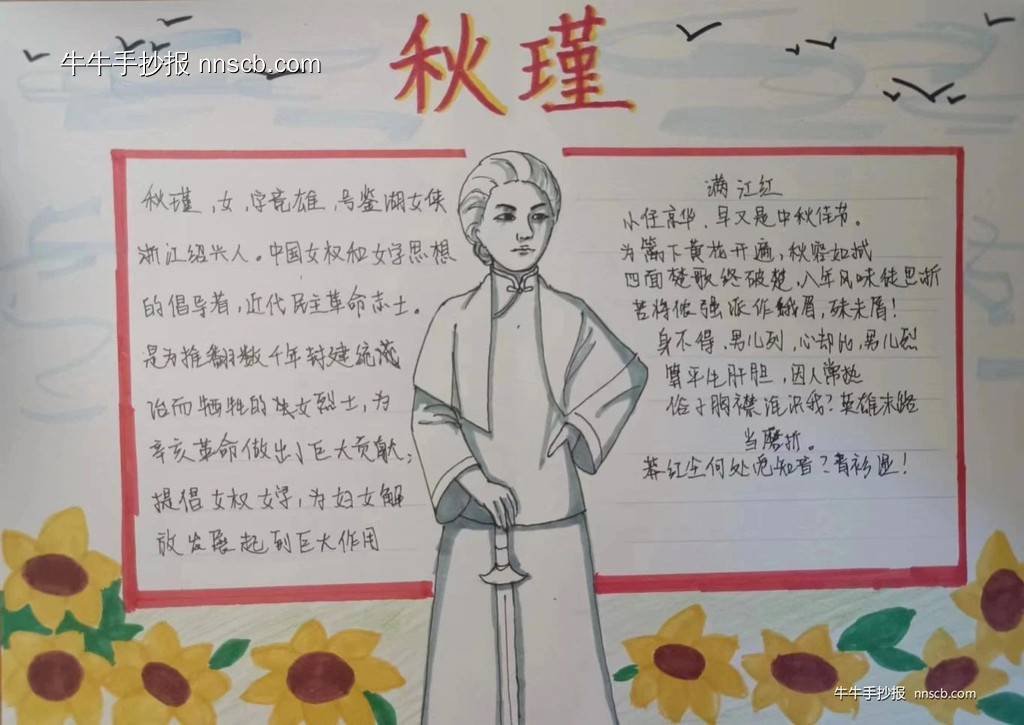 牛牛手抄报 nnscb.com
秋瑾
秋瑾,女,字竞雄,号鉴湖女侠
浙江绍兴人。中国女权和女学思想
的倡导者,近代民主革命志士。
是为推翻数千年封建统
治而牺牲的女烈士,为
辛亥革命做出了巨大贡献;
提倡女权女学,为妇女解
放发展起到巨大作用
满江红
小住京华,早又是中秋佳节。
为篱下黄花开遍,秋容如拭
四面楚歌终破楚,八年风味徒思浙
苦将侬强派作蛾眉,殊未屑!
身不得,男儿列,心却比,男儿烈
算平生肝胆,因人常热
俗子胸襟谁识我?英雄末路
当磨折。
莽红尘何处觅知音?青衫湿!
牛牛手抄报 nnscb.com